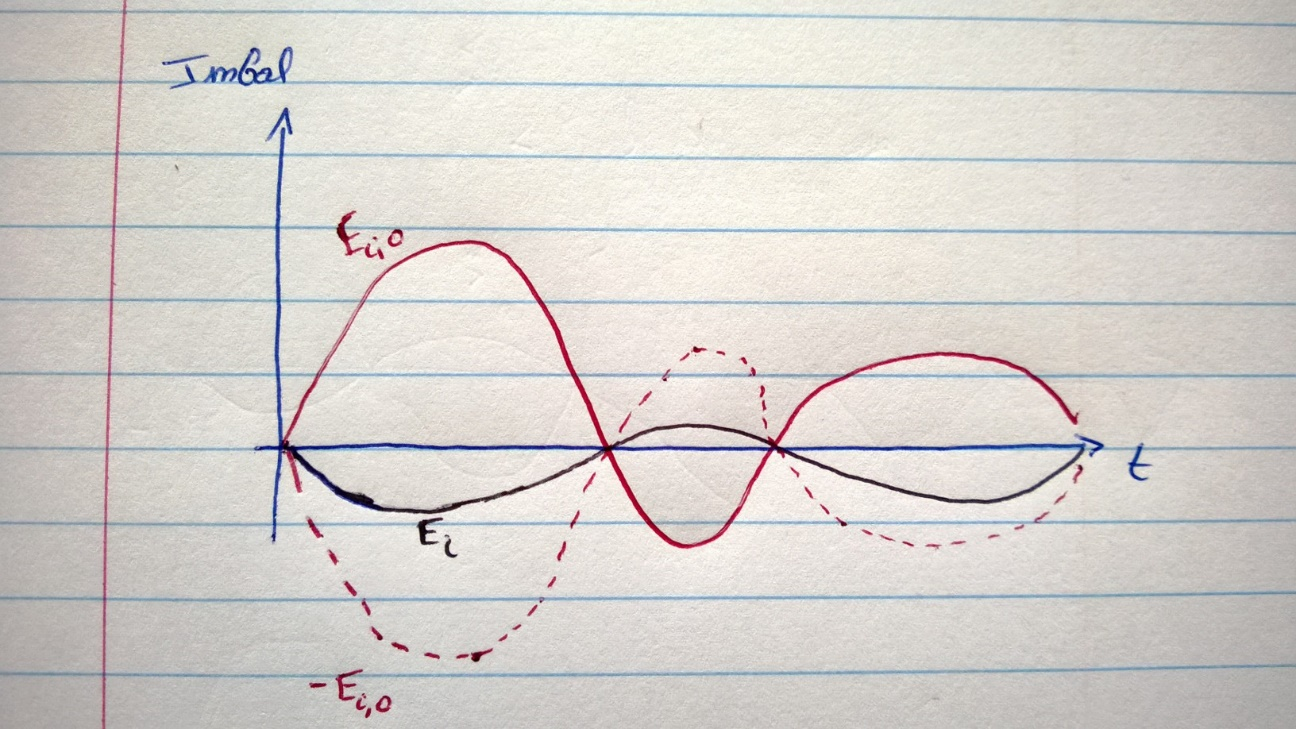 Imbal
Ei,0
Ei
t
-Ei,0